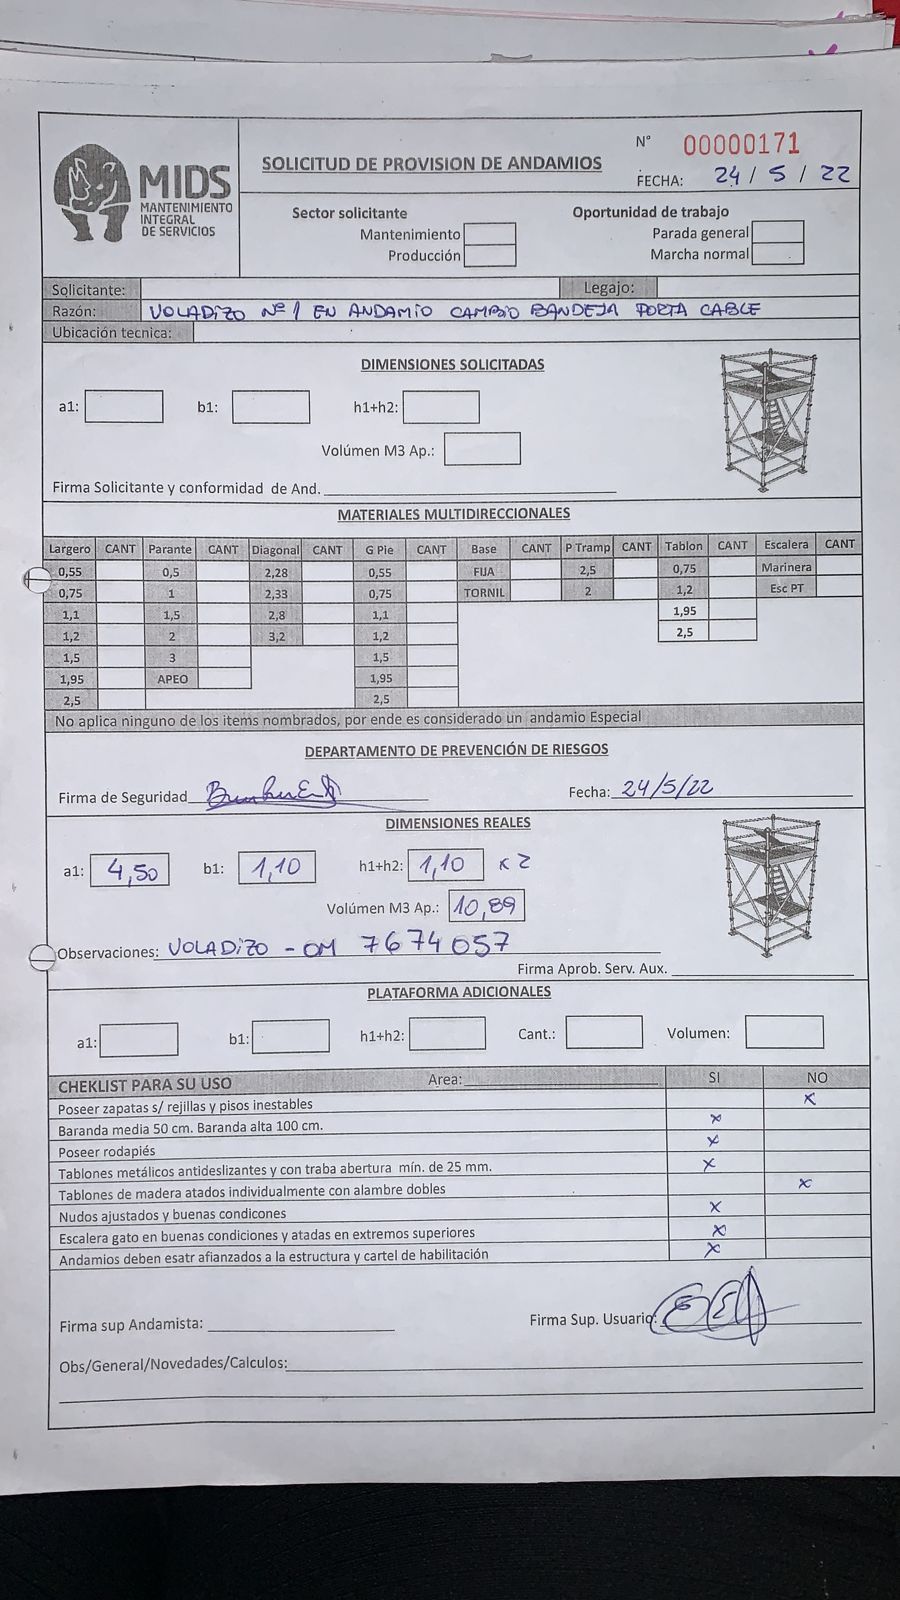 MIDS
MANTENIMIENTO
INTEGRAL
DE SERVICIOS
SOLICITUD DE PROVISION DE ANDAMIOS
N° 00000171
FECHA: 24 / 5 / 22
Sector solicitante
Mantenimiento
Producción
Oportunidad de trabajo
Parada general
Marcha normal
Solicitante: Legajo:
Razón: VOLADIZO Nº 1 EN ANDAMIO CAMBIO BANDEJA PORTA CABLE
Ubicación tecnica:
DIMENSIONES SOLICITADAS
a1: b1: h1+h2:
Volúmen M3 Ap.:
Firma Solicitante y conformidad de And.
MATERIALES MULTIDIRECCIONALES
Largero CANT Parante CANT Diagonal CANT G Pie CANT Base CANT P Tramp CANT Tablon CANT Escalera CANT
0,55 0,5 2,28 0,55 FIJA 2,5 0,75 Marinera
0,75 1 2,33 0,75 TORNIL 2 1,2 Esc PT
1,1 1,5 2,8 1,1 1,95
1,2 2 3,2 1,2 2,5
1,5 3 1,5
1,95 APEO 1,95
2,5 2,5
No aplica ninguno de los items nombrados, por ende es considerado un andamio Especial
DEPARTAMENTO DE PREVENCIÓN DE RIESGOS
Firma de Seguridad Fecha: 24/5/22
DIMENSIONES REALES
a1: 4,50 b1: 1,10 h1+h2: 1,10 x 2
Volúmen M3 Ap.: 10,89
Observaciones: VOLADIZO - OM 7674057
Firma Aprob. Serv. Aux.
PLATAFORMA ADICIONALES
a1: b1: h1+h2: Cant.: Volumen:
CHEKLIST PARA SU USO Area: SI NO
Poseer zapatas s/ rejillas y pisos inestables x
Baranda media 50 cm. Baranda alta 100 cm. x
Poseer rodapiés x
Tablones metálicos antideslizantes y con traba abertura mín. de 25 mm. x
Tablones de madera atados individualmente con alambre dobles x
Nudos ajustados y buenas condicones x
Escalera gato en buenas condiciones y atadas en extremos superiores x
Andamios deben esatr afianzados a la estructura y cartel de habilitación x
Firma sup Andamista: Firma Sup. Usuario:
Obs/General/Novedades/Calculos: